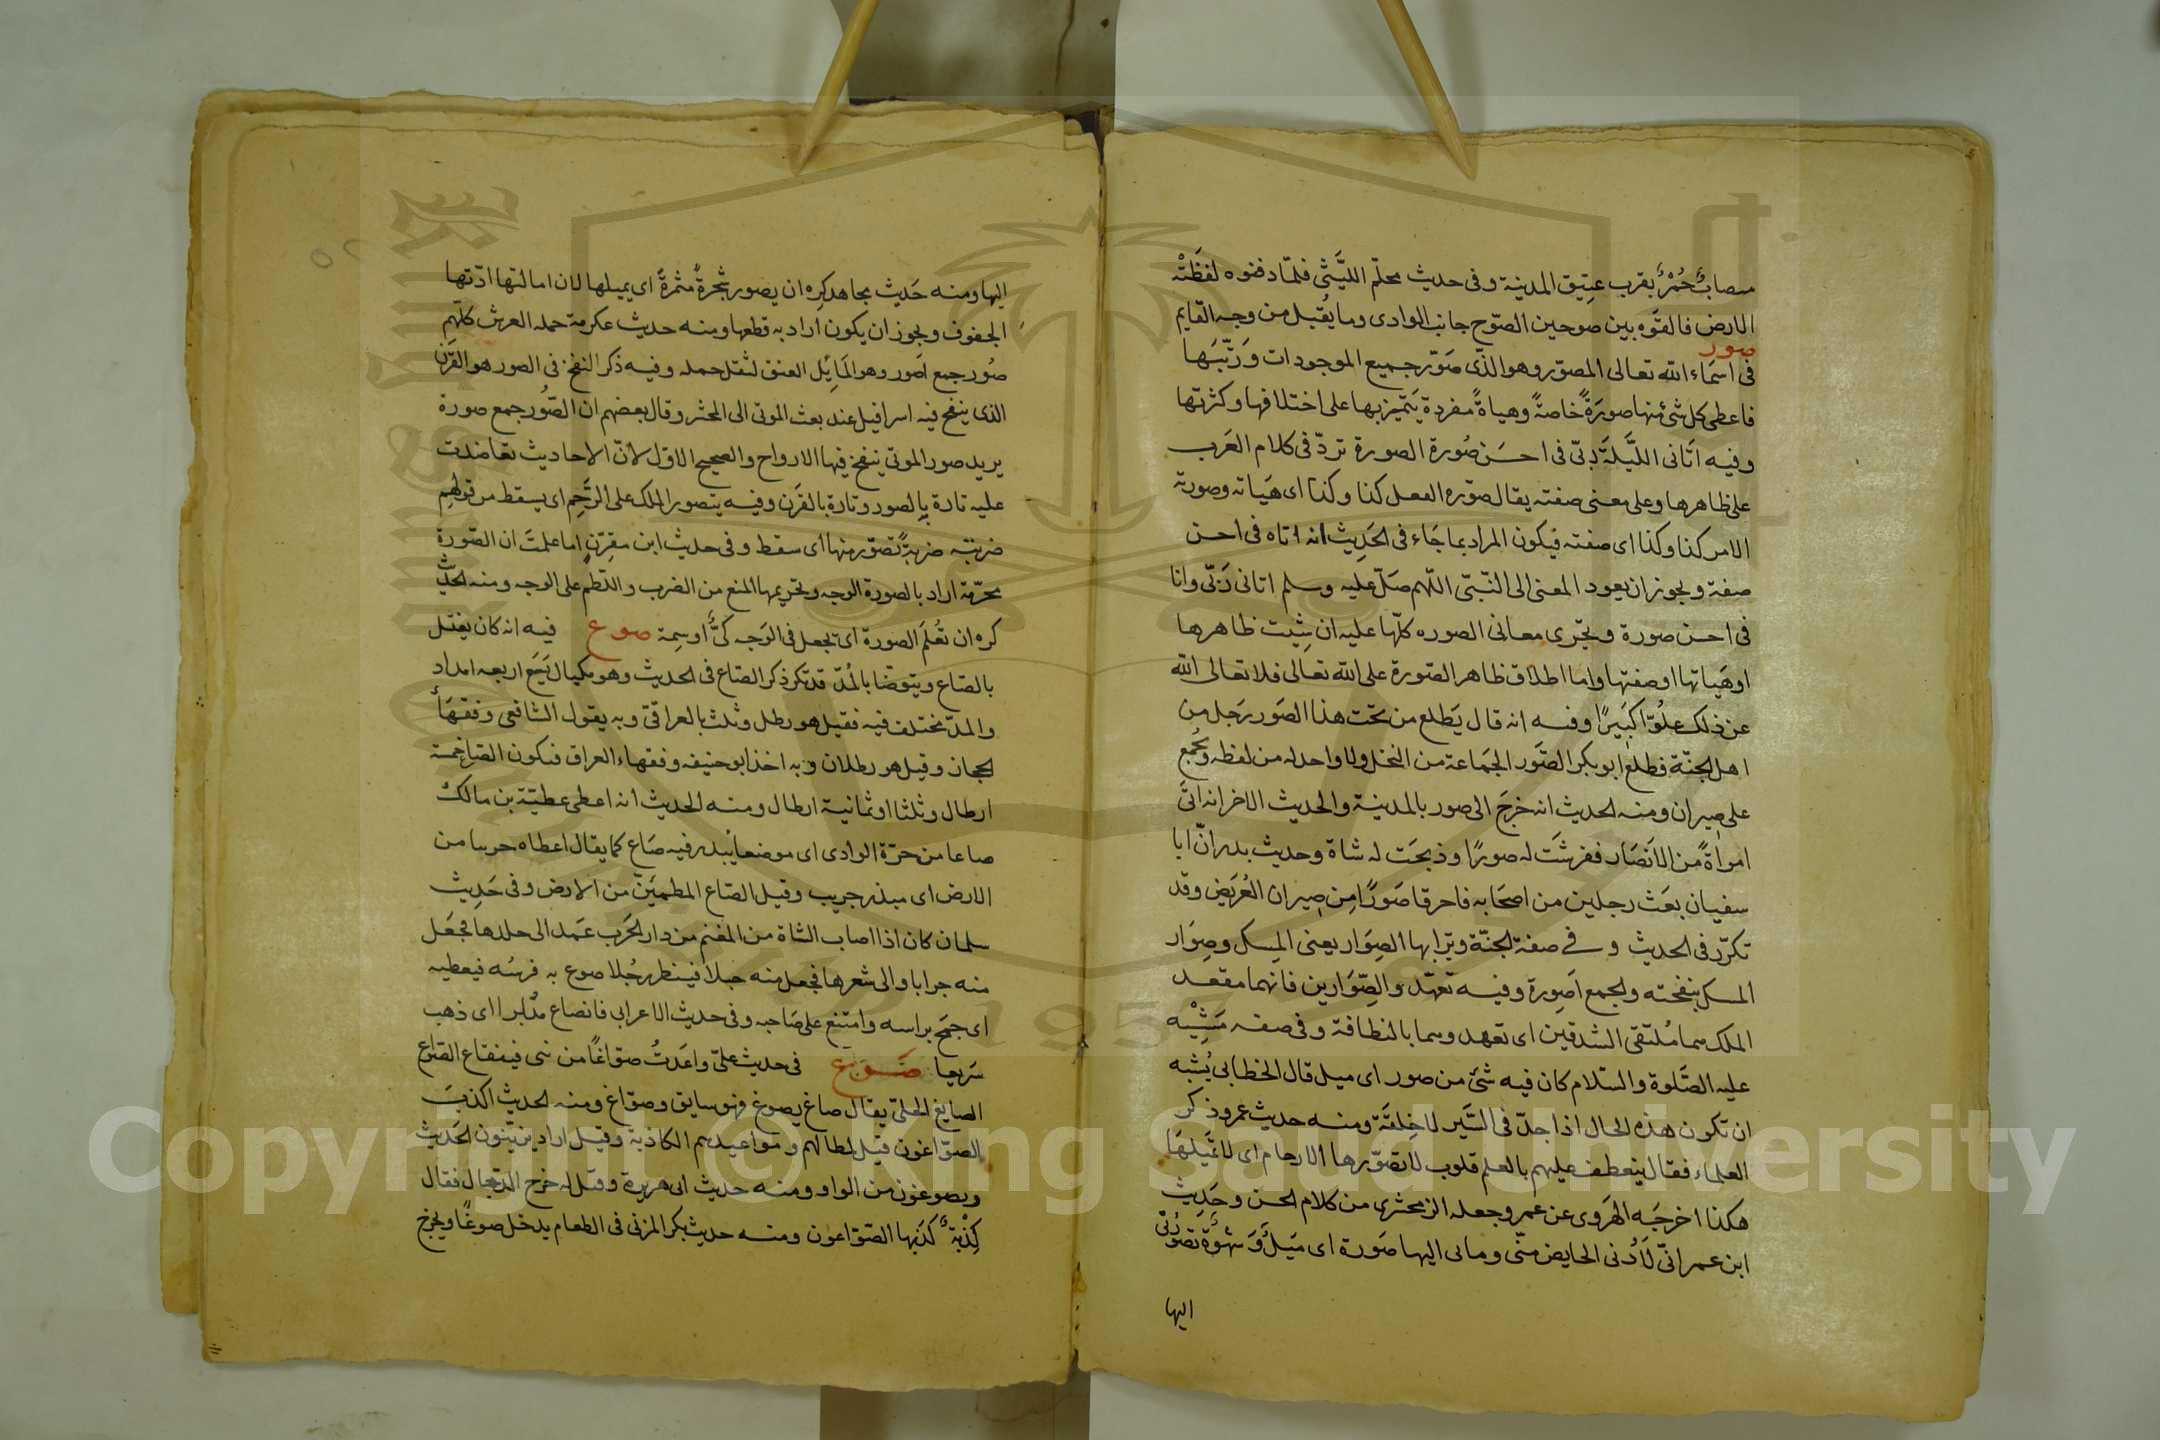 هضاب حُمْرٌ بقرب عتيق المدينة وفى حديث محلّم الليَّثى فلمّا دفنوه لفظَتْه
الارض فالقَوه بين صوحين الصّوح جانب الوادى وما يُقبل من وجهه القايم
صور
فى اسمَاء الله تعالى المصوّر وهو الذّى صَوّر جميع الموجودات وَرَتّبَها
فاعطى كل شئ منها صورَةً خاصةً وهياةً مفردة يَتمّيز بها على اختلافها وكثرتها
وفيه اتَانى اللَّيَلَةَ ربّى فى احسَن صُورة الصورة تردّ فى كلام العَرب
على ظاهرها وعلى معنى صفته يقال صوّره الفعل كذا وكذا اى هَيَاته وصورته
الامر كذا وكذا اى صفته فيكون المراد بما جَاء فى الحَدِيث انه اتاه فى احسن
صفة ويجوز ان يعود المعنى الى النّبىّ اللّهم صَلّ عليه وسلم اتانى رَبّى وانا
فى احسن صورة وتجرى معانى الصوره كلّها عليه ان شِيت ظاهرها
اوهَياتها اوصفتها واما اطلاق ظاهر الصّورة على الله تعالى فلا تعالى الله
عن ذلك علُوّا كبَيرًا وفيه انه قال يَطلع من تحت هذا الصَور رَجل من
اهل الجنّة فطلع ابو بكر الصَّور الجَماعة من النخل ولا واحد له من لفظه ويُجمع
على صِيران ومنه الحديث انه خرجَ الى صور بالمدينة والحديث الاخر انه اتَى
امراةً من الاَنصَار ففرشَت له صورًا وذبحَت له شاة وحديث بدر انّ ابا
سفيان بعَث رجلين من اصحَابه فاحرقا صَورًا مِن صِيران العُرَيض وقد
تكرّر فى الحديث وفى صفة الجنّة وترابها الصِوَار يعنى المِسك وصِوَار
المسك نفخته والجمع اَصوِرة وفيه تعهّدوا الصِّوَارين فانهما مقعد
الملك هما مُلتقى الشدقين اى تعهدوهما بالنظافة وفى صفه مَشِيْه
عليه الصَّلوة والسّلام كان فيه شئ من صور اى ميل قال الخطابى يُشبه
ان تكون هذه الحال اذا جدّ فى السَّير لا خِلقَة ومنه حديث عمر وذكر
العلماء فقال ينعطف عليهم بالعلم قلوب لا تصَوّرها الارحام اى لا تمُيلهَا
هكذا اخرجَه الهَروى عن عمر وجعله الزمخشرى من كلام الحسن وحَدِيث
ابن عمر انّى لَاَدُنى الحايض منّى وما بى اليها صَورة اى مَيلٌ وَشهوَةٌ تصورُنى
اليها
اليها ومنه حَديث مجاهد كِره ان يصور شجرةً مثمرةً اى يميلها لان امالتها ادّتها
الجفوف ويجوز ان يكون اراد به قطعها ومنه حديث عكرمة حمله العرش كلّهم
صُور جمع اَصَور وهو المَايُل العنق لثقل حمله وفيه ذكر النفخ فى الصور هو القَرن
الذى ينفخ فيه اسرافيل عند بعث الموتى الى المحشر وقال بعضهم ان الصُور جمع صورة
يريد صور الموتى ينفخ فيها الارواح والصحيح الاول لانّ الاحاديث تعاضدت
عليه تارة بالصور وتارة بالقرَن وفيه يتصور الملك على الرَّحِم اى يسقط من قولهم
ضربته ضربةً تصَوّر منها اى سقط وفى حديث ابن مقرّن اما علمت ان الصّورة
محرّمة اراد بالصورة الوجه وتحريمها المنع من الضرب واللطم على الوجه ومنه الحدَيث
كره ان تُعلَم الصورة اى يجعل فى الوَجه كىٌّ او سِمة صوع فيه انه كان يغتسل
بالصّاع ويتوضا بالمُدّ قد تكرر ذكر الصّاع فى الحديث وهو مكيال يَسَع اربعه امداد
والمدّ مختلف فيه فقيل هو رطل وثلث بالعراقى وبه يقول الشافعى وفقهَأ
الحجاز وقيل هو رطلان وبه اخذ ابو حنيفه وفقهاء العراق فيكون الصّاع خمسة
ارطال وثلثا او ثمانية ارطال ومنه الحديث انه اعطى عطيّة بن مالك
صاعا من حرّة الوادى اى موضعا يُبذر فيه صَاع كما يقال اعطاه جريبا من
الارض اى مبذر جريب وقيل الصّاع المطميَن من الارض وفى حَدِيث
سلمان كان اذا اصاب الشاة من المغنم من دار الحَرب عَمد الى جلدها فجعَل
منه جرابا والى شعرها فجعل منه حبلا فينظر رجُلا صوع به فرسُه فيعطيه
اى جمح براسه وامتنع على صَاحبه وفى حديث الاعرابى فانصاع مدُبرا اى ذهب
سَريعا صَوغ فى حديث علىّ واعَدتُ صوّاغًا من بنى قينقاع الصّواغ
الصايغ الحلىّ يقال صاغ يصوغ فهو سايغ وصوّاغ ومنه الحديث اكذبَ
الصوّاغون قيل لمطالهم ومواعيدهم الكاذبة وقيل اراد يزيّنون الحَديث
ويصوغون من الواو ومنه حديث ابى هريرة وقيل له خرج الدّجال فقال
كِذْبةٌ كذَبها الصّوّاغون ومنه حديث بكر المزنى فى الطعام يدخل صوغًا ويخرج
Copyright © King Saud University
King Saud University
1957